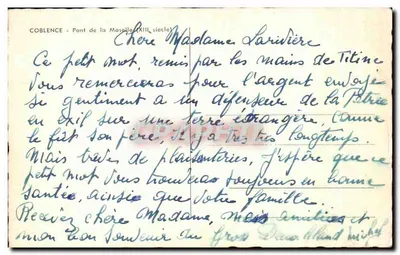 COBLENCE - Pont de la Moselle (XIIe siècle)
Chère Madame Larivière
Ce petit mot, remis par les mains de Titine
Vous remerciera pour l'argent envoyé
si gentiment a un défenseur de la Patrie
en exil sur une terre étrangère. Comme
le fût son père, il y a très très longtemps.
Mais trève de plaisanteries, j'espère que ce
petit mot vous trouvera toujours en bonne
santée, ainsie que votre famille.
Recevez chère Madame, mes amitiées et
mon bon souvenir du Gros